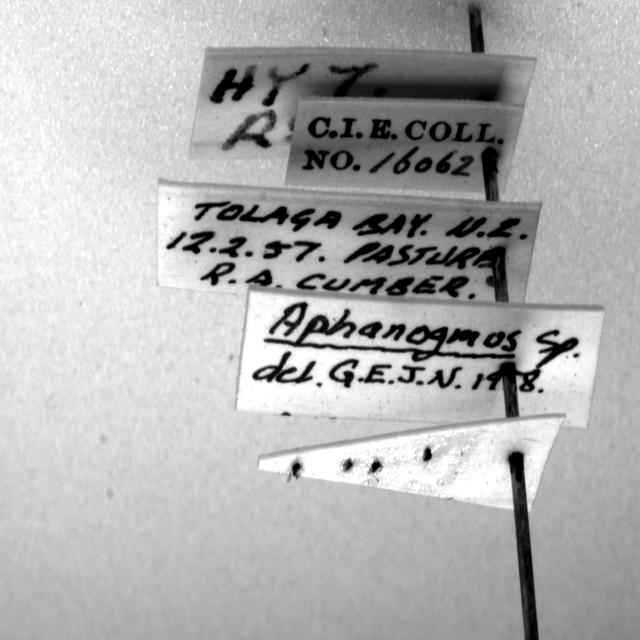 HY 7.
C.I.E. COLL.
NO. 16062
TOLAGA BAY. N.Z.
12.2.57. PASTURE
R.A. CUMBER.
Aphanogmus Sp.
det. G.E.J.N.